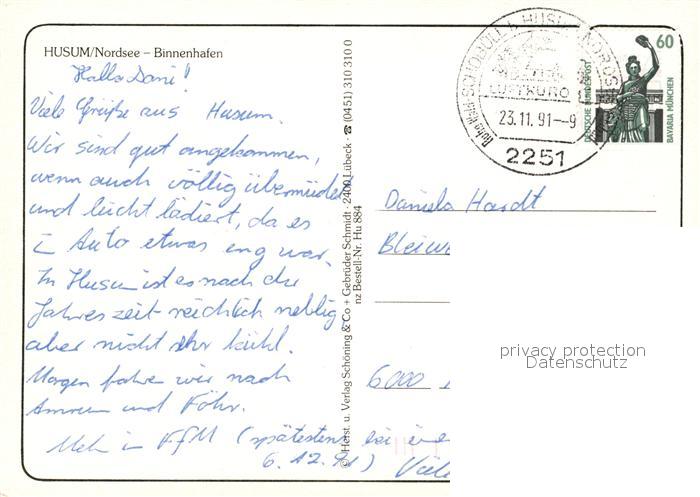 HUSUM/Nordsee – Binnenhafen
Hallo Dani!
Viele Grüße aus Husum.
Wir sind gut angekommen,
wenn auch völlig übermüdet
und leicht lädiert, da es
i Auto etwas eng war.
In Husum ist es nach der
Jahreszeit reichlich neblig
aber nicht sehr kühl.
Morgen fahren wir nach
Amrum und Föhr.
Mehr in FfM (spätestens bei
6.12.91) Viele
© Herst. u. Verlag Schöning & Co + Gebrüder Schmidt · 2400 Lübeck · ☎ (0451) 310 310 0
nz Bestell-Nr. Hu 884
SCHOBÜLL B HUSUM
LUFTKURO
23.11.91--9
2251
60
DEUTSCHE BUNDESPOST
BAVARIA MÜNCHEN
Daniela Hardt
6000
privacy protection
Datenschutz